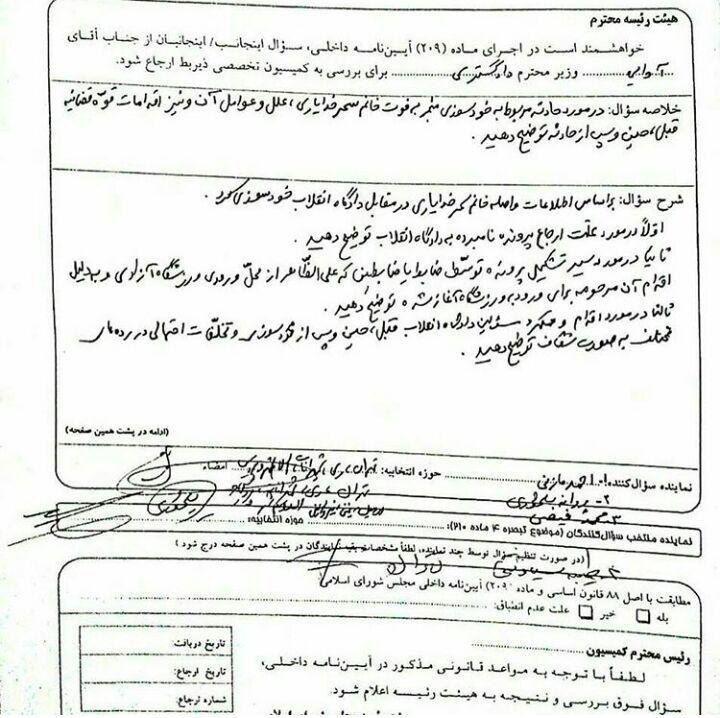 هیئت رئیسه محترم
خواهشمند است در اجرای ماده (۲۰۹) آیین‌نامه داخلی، سؤال اینجانب/ اینجانبان از جناب آقای
آوایی وزیر محترم دادگستری برای بررسی به کمیسیون تخصصی ذیربط ارجاع شود.
خلاصه سؤال: در مورد حادثه مربوط به خودسوزی منجر به فوت خانم سحر خدایاری، علل و عوامل آن و نیز اقدامات قوّه قضائیه
قبل، حین و پس از حادثه توضیح دهید.
شرح سؤال: براساس اطلاعات واصله خانم سحر خدایاری در مقابل دادگاه انقلاب خودسوزی کرد.
اولاً در مورد علّت ارجاع پرونده نامبرده به دادگاه انقلاب توضیح دهید.
ثانیاً در مورد مسیر تشکیل پرونده توسّط ضابط یا ضابطین که علی‌الظّاهر از محلّ ورودی ورزشگاه آزادی و به دلیل
اقدام آن مرحومه برای ورود به ورزشگاه آغاز شده توضیح دهید.
ثالثاً در مورد اقدام و عملکرد مسؤلین دادگاه انقلاب قبل، حین و پس از خودسوزی و تخلّفات احتمالی در رده‌های
مختلف به صورت شفّاف توضیح دهید.
(ادامه در پشت همین صفحه)
نماینده سؤال‌کننده: ۱- احمد مازنی حوزه انتخابیه: تهران، ری، امضاء
۲- پروانه سلحشوری تهران، ری،
۳- محمد فیضی
نماینده منتخب سؤال‌کنندگان (موضوع تبصره ۴ ماده ۲۱۰): حوزه انتخابیه:
(در صورت تنظیم سؤال توسط چند نماینده، لطفاً مشخصات بقیه نمایندگان در پشت همین صفحه درج شود)
مطابقت با اصل ۸۸ قانون اساسی و ماده (۲۰۹) آیین‌نامه داخلی مجلس شورای اسلامی:
بله خیر علت عدم انطباق:
رئیس محترم کمیسیون
لطفاً با توجه به مواعد قانونی مذکور در آیین‌نامه داخلی،
سؤال فوق بررسی و نتیجه به هیئت رئیسه اعلام شود.
تاریخ دریافت:
تاریخ ارجاع:
شماره ارجاع: